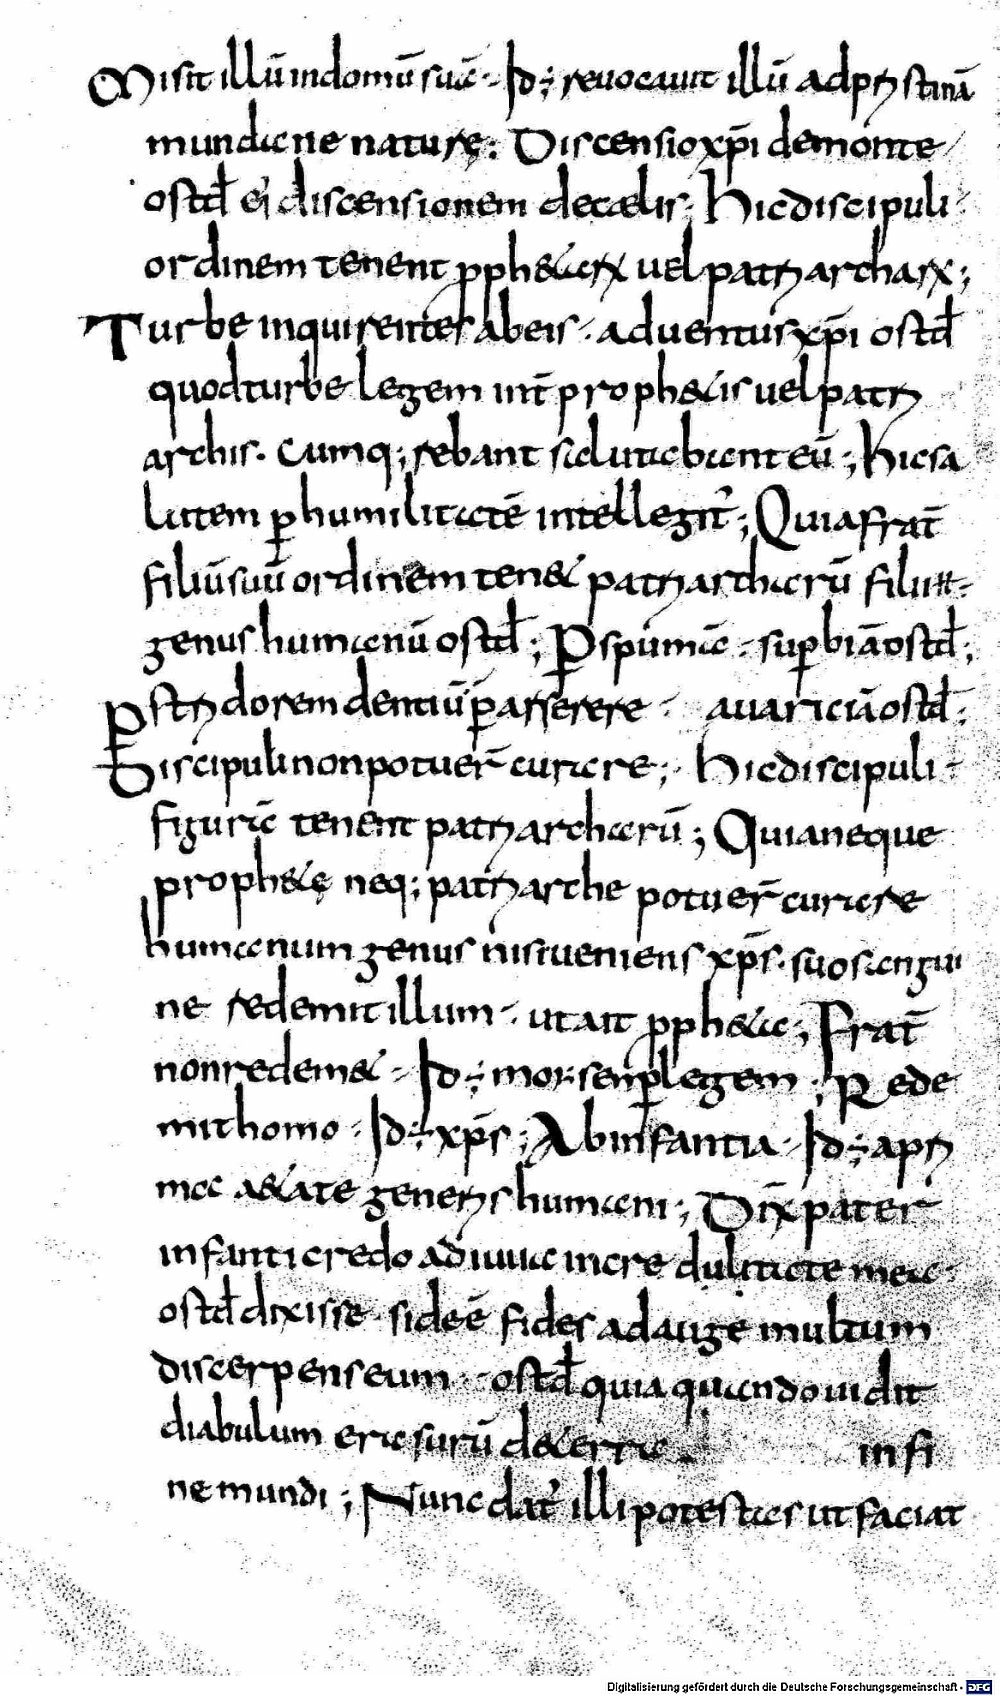 Misit illū indomū suā · Id ÷ revocavit illū adpristinā
mundiane nature : Discensio xp̄i demonte
ostd̄ ei discensionem decaelis ; Hic discipuli
ordinem tenent ꝓphetarꝝ vel patriarcharꝝ ;
Turbe inquirentes abeis · adventus xp̄i ostd̄
quod turbe legem int̄ prophetis vel patri
archis · Cumq; rebant salutabant eū ; Hic sa
lutem ꝑ humilitatē intellegit̄ ; Quia frat̄
filiū suū ordinem tenet patriarcharū filiū
genus humanū ostd̄ ; P spumā · suꝑbiā ostd̄ ;
P stridorem dentiū ꝑ asserere · avariciā ostd̄ ;
Discipuli non potuer̄ curare ; Hic discipuli
figurā tenent patriarcharū ; Quia neque
prophetę neq; patriarche potuer̄ curare
humanum genus nisi veniens xp̄s · suo sangui
ne redemit illum · ut ait ꝓpheta ; Frat̄
non redemet · Id ÷ mosen ꝑ legem ; Rede
mit homo · Id ÷ xp̄s ; Ab infantia · Id ÷ apri
ma aetate generis humani ; Dix̄ pater
infanti credo adiuva incredulitate mea
ostd̄ dixisse · si deē fides adauge multum
discerpens eum · ostd̄ quia quando vidit
diabulum erasurū de terra in fi
ne mundi ; Nunc dat̄ illi potestas ut faciat
Digitalisierung gefördert durch die Deutsche Forschungsgemeinschaft - DFG